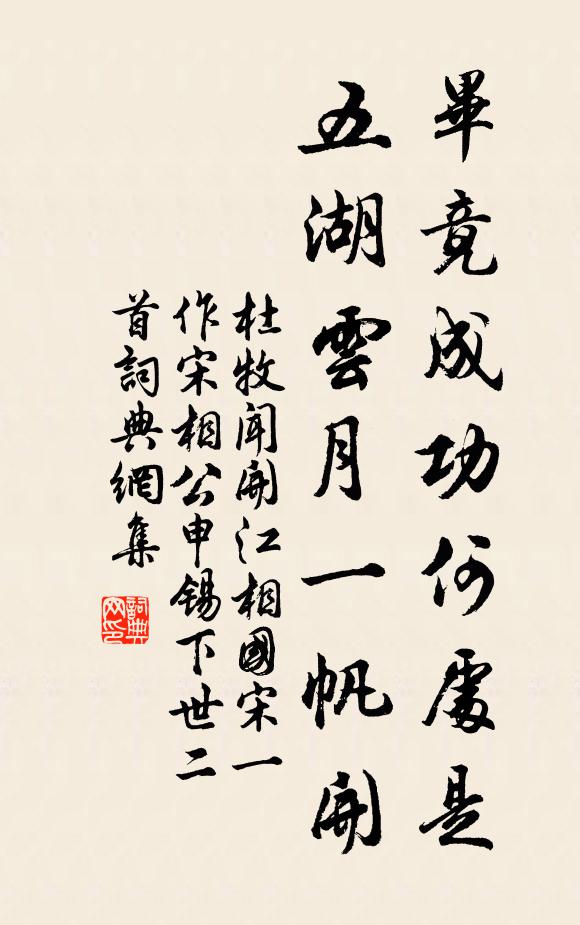 畢竟成功何處是
五湖雲月一帆開
杜牧聞開江相國宋一
作宋相公申錫下世二
首詞典網集
詞典
网印